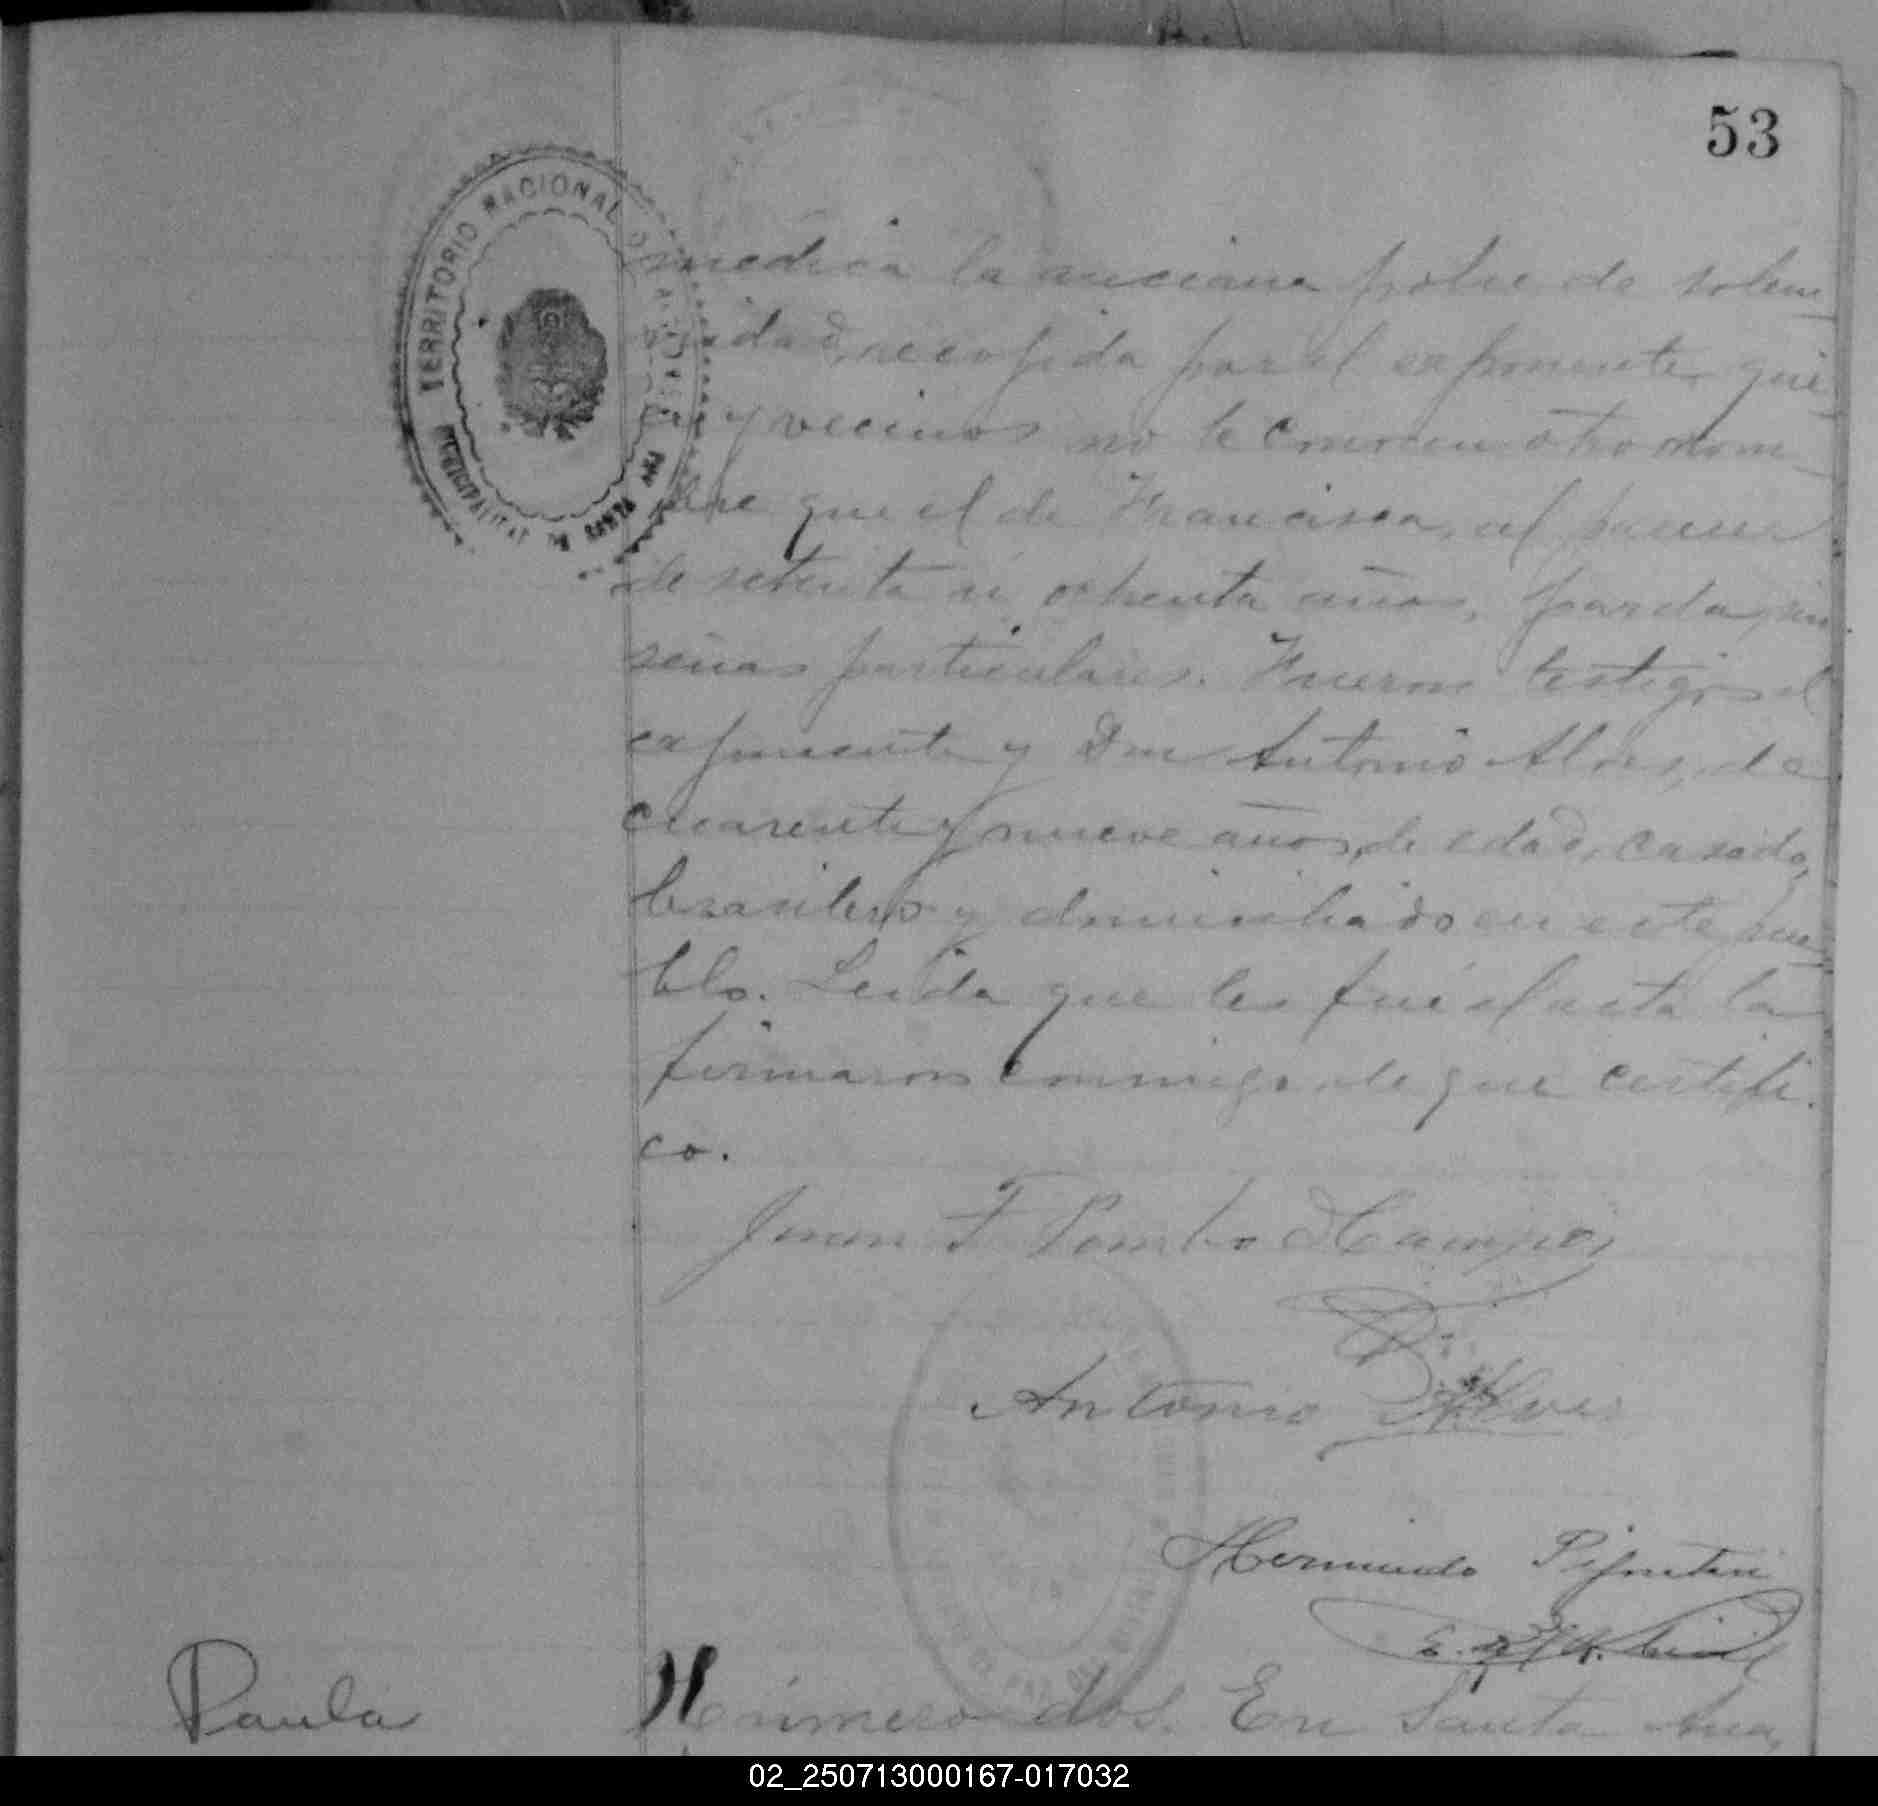 53
TERRITORIO NACIONAL DE MISIONES
MUNICIPALIDAD DE SANTA ANA
médica la anciana pobre de solem-
nidad, recojida por el exponente, qui-
en y vecinos no le conocen otro nom-
bre que el de Francisca, al parecer
de setenta ú ochenta años, parda, sin
señas particulares. Fueron testigos el
exponente y Don Antonio Alves, de
cuarenta y nueve años, de edad, casado,
brasilero y domiciliado en este pue-
blo. Leida que les fué el acta la
firmaron conmigo de que certifi-
co.
Juan F Pombo Campos
Antonio Alves
Hermindo
Paula
Número dos. En Santa Ana,
02_250713000167-017032